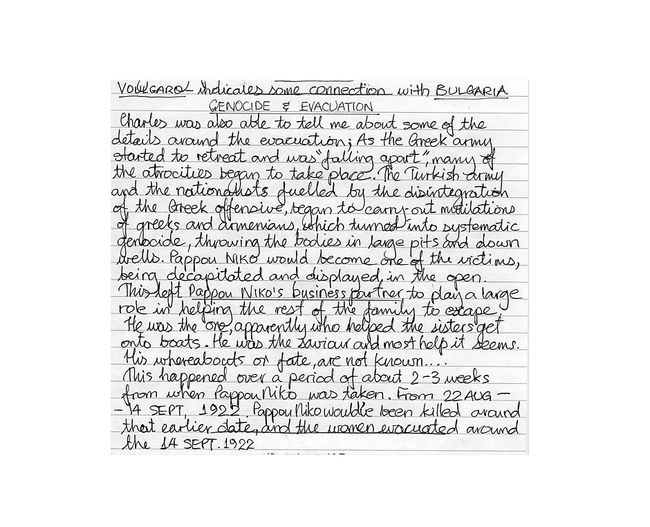 VOULGAROL indicates some connection with BULGARIA
GENOCIDE & EVACUATION
Charles was also able to tell me about some of the
details around the evacuation; As the Greek army
started to retreat and was "falling apart", many of
the atrocities began to take place. The Turkish army
and the nationalists fuelled by the disintegration
of the Greek offensive, began to carry out mutilations
of greeks and armenians, which turned into systematic
genocide, throwing the bodies in large pits and down
wells. Pappou NIKO would become one of the victims,
being decapitated and displayed, in the open.
This left Pappou NIKO's business partner to play a large
role in helping the rest of the family to escape.
He was the one, apparently who helped the sisters get
onto boats. He was the saviour and most help it seems.
His whereabouts or fate, are not known....
This happened over a period of about 2-3 weeks
from when Pappou Niko was taken. From 22 AUG -
- 14 SEPT, 1922. Pappou Niko would've been killed around
that earlier date, and the women evacuated around
the 14 SEPT. 1922